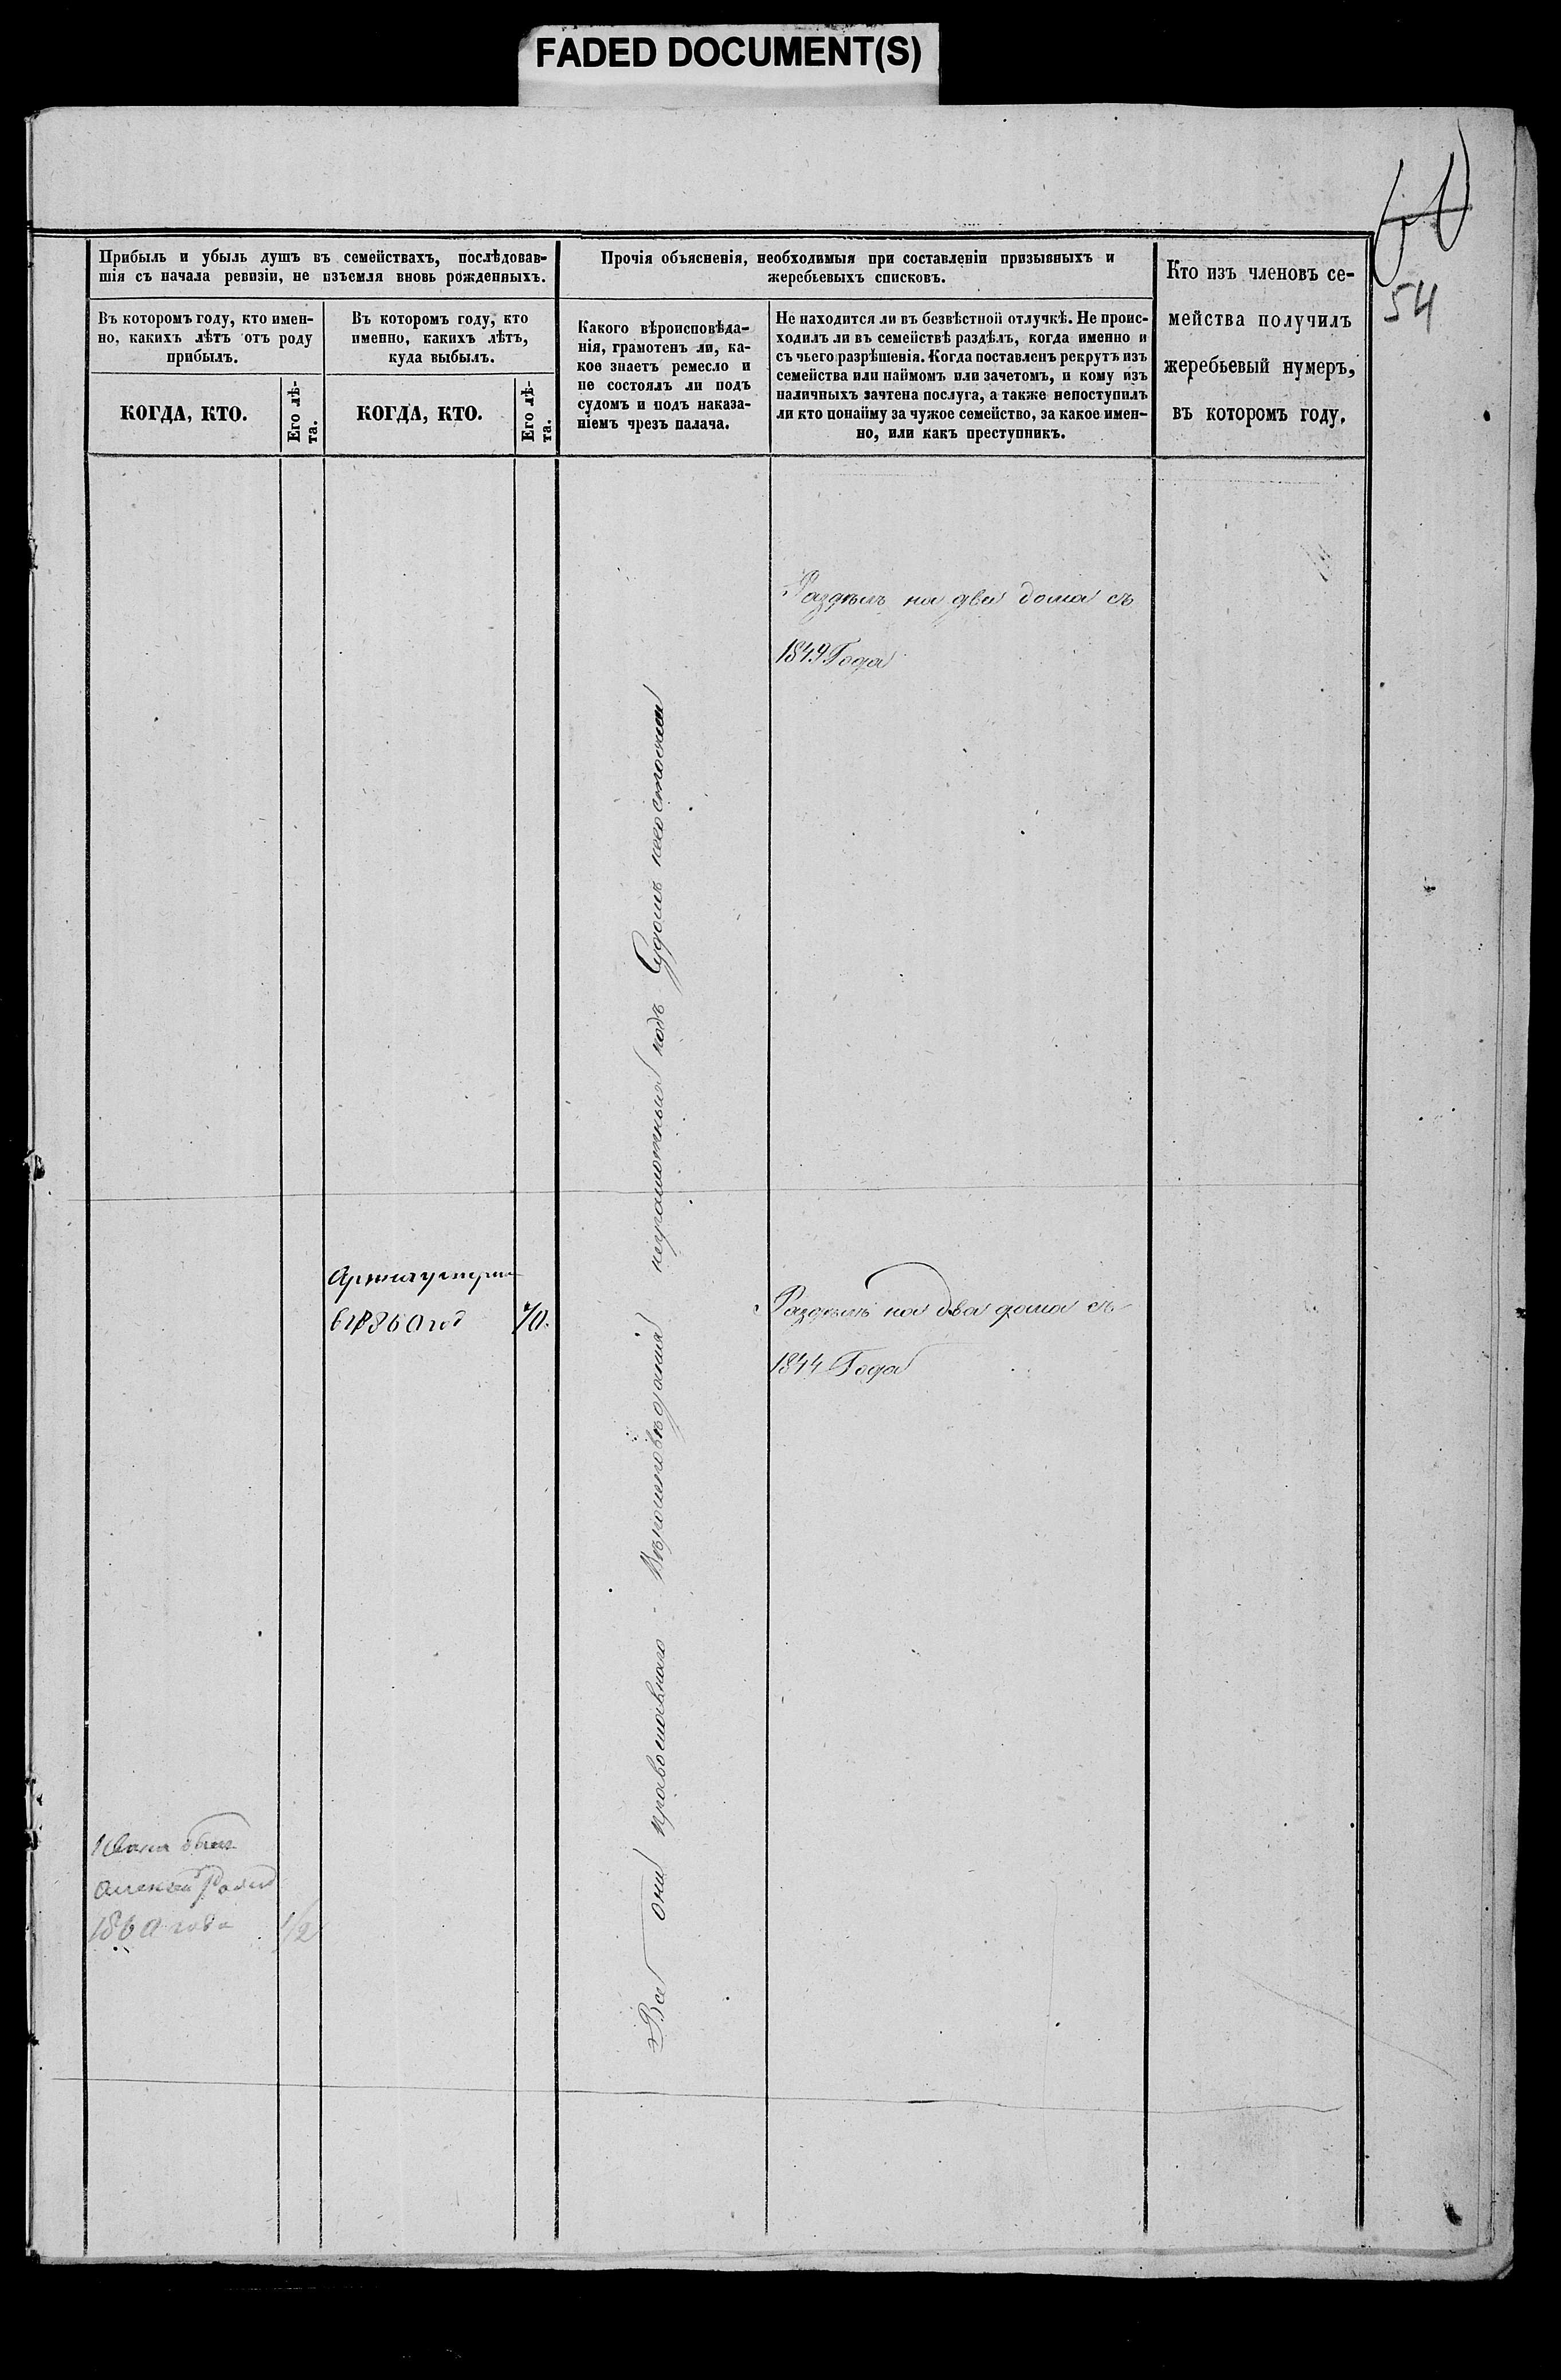 FADED DOCUMENT(S)
54
Прибыль и убыль душъ въ семействахъ, послѣдовав-
шія съ начала ревизіи, не изъемля вновь рожденныхъ.
Въ которомъ году, кто имен-
но, какихъ лѣтъ отъ роду
прибылъ.
КОГДА, КТО.
Его лѣ-
та.
Въ которомъ году, кто
именно, какихъ лѣтъ,
куда выбылъ.
КОГДА, КТО.
Его лѣ-
та.
Прочія объясненія, необходимыя при составленіи призывныхъ и
жеребьевыхъ списковъ.
Какого вѣроисповѣда-
нія, грамотенъ ли, ка-
кое знаетъ ремесло и
не состоялъ ли подъ
судомъ и подъ наказа-
ніемъ чрезъ палача.
Не находится ли въ безвѣстной отлучкѣ. Не проис-
ходилъ ли въ семействѣ раздѣлъ, когда именно и
съ чьего разрѣшенія. Когда поставленъ рекрутъ изъ
семейства или наймомъ или зачетомъ, и кому изъ
наличныхъ зачтена послуга, а также непоступилъ
ли кто понайму за чужое семейство, за какое имен-
но, или какъ преступникъ.
Кто изъ членовъ се-
мейства получилъ
жеребьевый нумеръ,
въ которомъ году.
Раздѣлъ на два дома съ
1849 Года
Все они православнаго Вѣроисповѣданія неграмотныя подъ Судомъ несостояли
в 1860 год 70.
Раздѣлъ на два дома съ
1844 Года
Алексей
1860 года 1/2